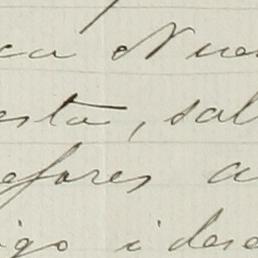 ca Nue
esta, sal
efores a
igo i dese